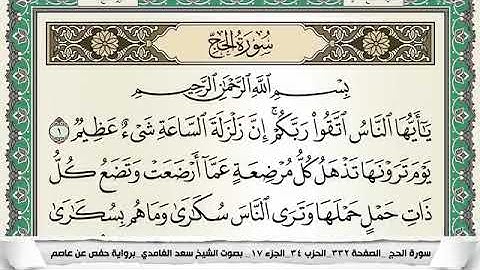 سُورَةُ الحَجِّ
بِسْمِ اللَّهِ الرَّحْمَٰنِ الرَّحِيمِ
يَٰٓأَيُّهَا النَّاسُ اتَّقُوا رَبَّكُمْ ۚ إِنَّ زَلْزَلَةَ السَّاعَةِ شَيْءٌ عَظِيمٌ ١
يَوْمَ تَرَوْنَهَا تَذْهَلُ كُلُّ مُرْضِعَةٍ عَمَّآ أَرْضَعَتْ وَتَضَعُ كُلُّ
ذَاتِ حَمْلٍ حَمْلَهَا وَتَرَى النَّاسَ سُكَٰرَىٰ وَمَا هُم بِسُكَٰرَىٰ
سورة الحج _ الصفحة ٣٣٢_ الحزب ٣٤_ الجزء ١٧ _ بصوت الشيخ سعد الغامدي_ برواية حفص عن عاصم